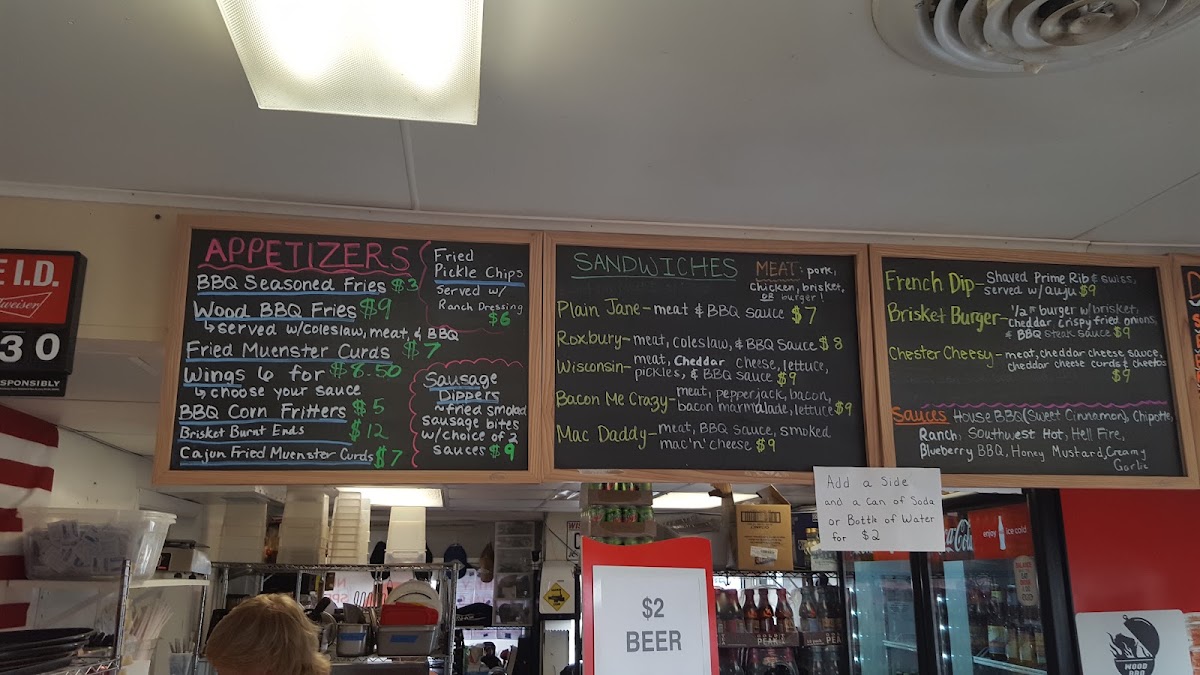 E I.D.
Budweiser
30
SPONSIBLY
APPETIZERS
BBQ Seasoned Fries $3
Wood BBQ Fries $9
↳served w/coleslaw, meat, & BBQ
Fried Muenster Curds $7
Wings 6 for $8.50
↳choose your sauce
BBQ Corn Fritters $5
Brisket Burnt Ends $12
Cajun Fried Muenster Curds $7
Fried
Pickle Chips
Served w/
Ranch Dressing
$6
Sausage
Dippers
~fried smoked
sausage bites
w/choice of 2
sauces $9
SANDWICHES
MEAT: pork,
chicken, brisket,
OR burger!
Plain Jane- meat & BBQ sauce $7
Roxbury- meat, coleslaw, & BBQ sauce $8
Wisconsin- meat, Cheddar cheese, lettuce,
pickles, & BBQ sauce $9
Bacon Me Crazy- meat, pepperjack, bacon,
bacon marmalade, lettuce $9
Mac Daddy- meat, BBQ sauce, smoked
mac'n'cheese $9
French Dip- Shaved Prime Rib & swiss,
served w/auju $9
Brisket Burger- 1/2 # burger w/brisket,
cheddar crispy fried onions,
& BBQ steak sauce $9
Chester Cheesy- meat, cheddar cheese sauce,
cheddar cheese curds & cheetos
$9
Sauces House BBQ (Sweet Cinnamon), Chipotle,
Ranch, Southwest Hot, Hell Fire,
Blueberry BBQ, Honey Mustard, Creamy
Garlic
Add a Side
and a Can of Soda
or Bottle of Water
for $2
$2
BEER
Coca-Cola
enjoy ice cold
WOOD
BBQ